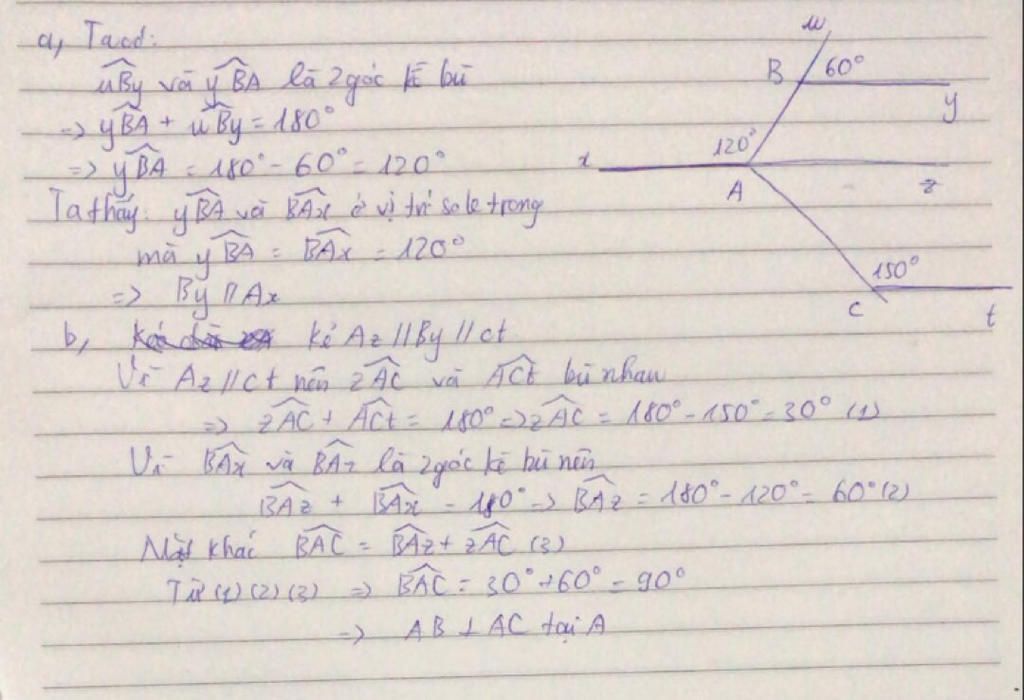 a, Ta có:
m
B
60°
uBy và yBA là 2 góc kề bù
y
=> yBA + uBy = 180°
120°
x
=> yBA = 180° - 60° = 120°
A
z
Ta thấy: yBA và BAx ở vị trí so le trong
mà yBA = BAx = 120°
150°
=> By // Ax
C
t
b, kẻ Az // By // ct
Vì Az // Ct nên zAC và ACt bù nhau
=> zAC + ACt = 180° => zAC = 180° - 150° = 30° (1)
Vì BAx và BAz là 2 góc kề bù nên
BAz + BAx = 180° => BAz = 180° - 120° = 60° (2)
Mặt khác BAC = BAz + zAC (3)
Từ (1) (2) (3) => BAC = 30° + 60° = 90°
=> AB ⊥ AC tại A